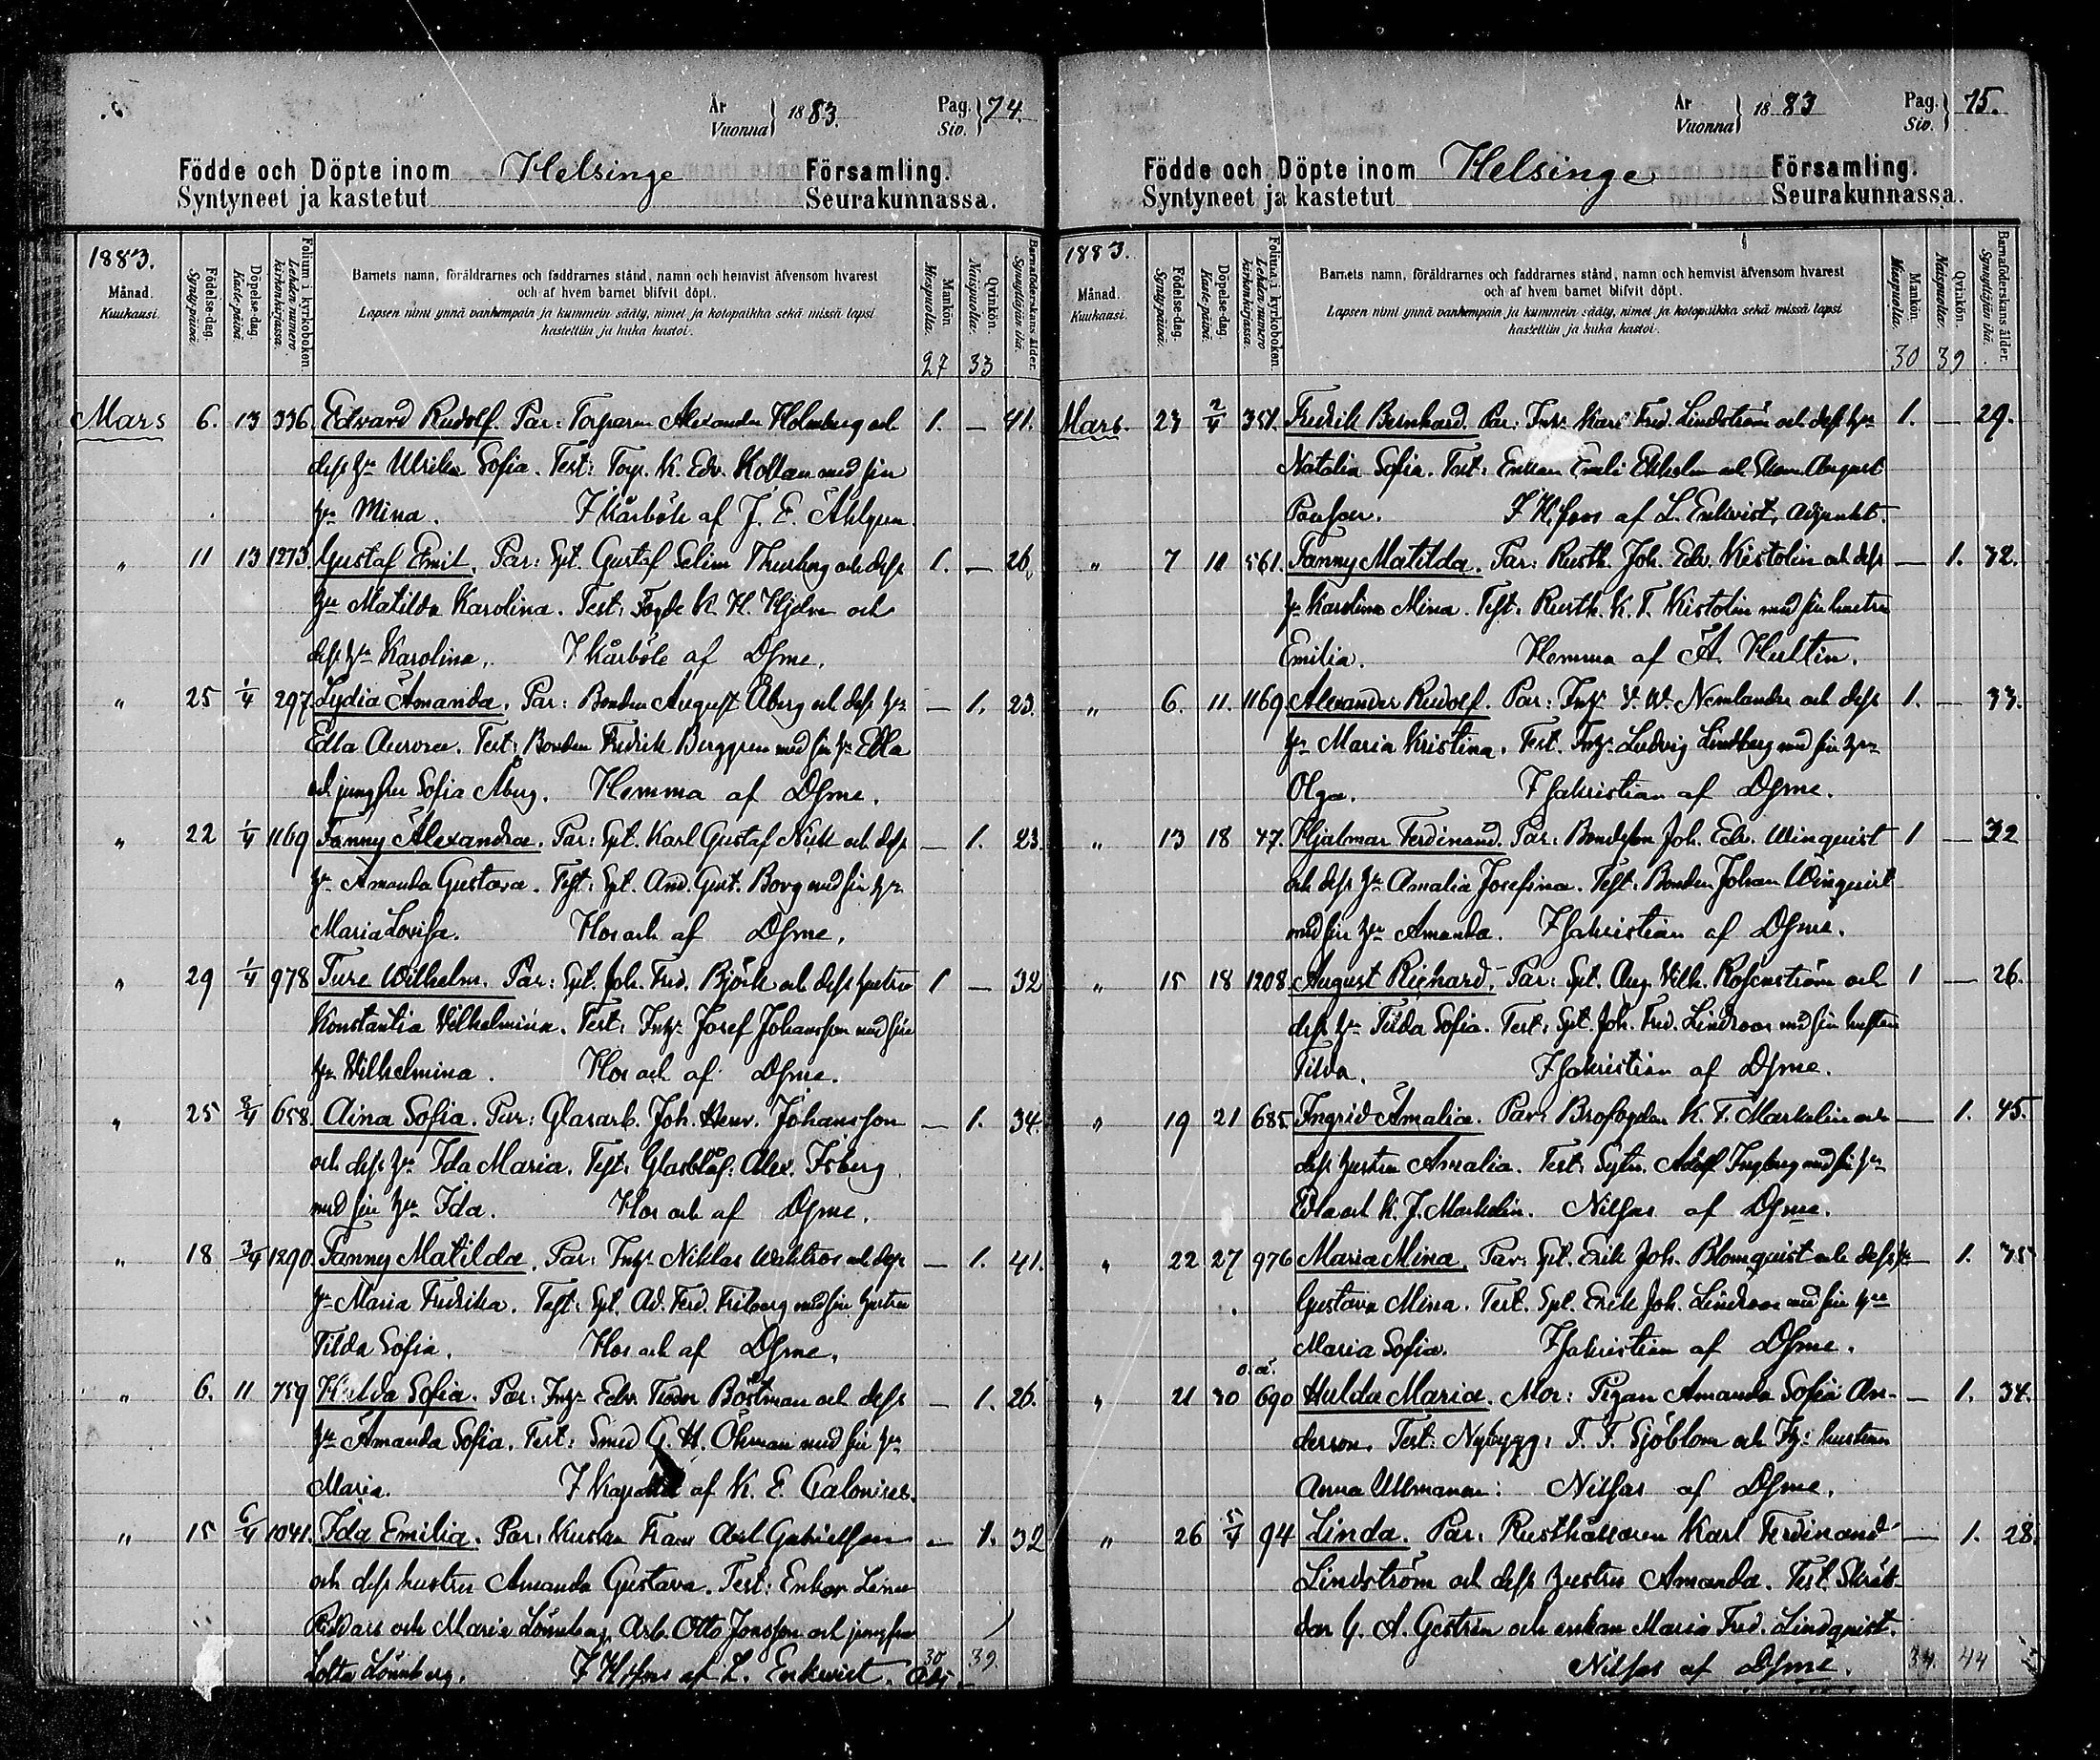 År
Vuonna } 1883. Pag.
Siv. } 74.
Födde och Döpte inom Helsinge Församling.
Syntyneet ja kastetut Seurakunnassa.
1883.
Månad.
Kuukausi.
Födelse-dag.
Syntypäivä.
Döpelse-dag.
Kaste-päivä.
Folium i kyrkoboken.
Lehden numero kirkonkirjassa.
Barnets namn, föräldrarnes och faddrarnes stånd, namn och hemvist äfvensom hvarest
och af hvem barnet blifvit döpt.
Lapsen nimi ynnä vanhempain ja kummein sääty, nimet ja kotopaikka sekä missä lapsi
kastettiin ja kuka kastoi.
Mankön.
Miespuolia.
Qvinkön.
Naispuolia.
Barnaföderskans ålder.
Synnyttäjän ikä.
27 33
Mars 6. 13 336. Edvard Rudolf. Par: Torparen Alexander Holmberg och 1. — 41.
dess hu Ulrika Sofia. Test: Torp. K. Edv. Kollan med sin
hu Mina. I Kårböle af J. E. Åhlgren.
" 11 13 1273. Gustaf Emil. Par: Spt. Gustaf Selim Thunberg och dess 1. — 26.
hu Matilda Karolina. Test: Fogde K. H. Hjelm och
dess hu Karolina. I Kårböle af Dsme.
" 25 1/4 297. Lydia Amanda. Par: Bonden August Åberg och dess hu — 1. 23.
Edla Aurora. Test: Bonden Fredrik Berggren med sin hu Edla
och jungfru Sofia Åberg. Hemma af Dsme.
" 22 1/4 1169 Fanny Alexandra. Par: Spt. Karl Gustaf och dess — 1. 23.
hu Amanda Gustava. Test: Spt. And. Gust. Borg med sin hu
Maria Lovisa. Hos och af Dsme.
" 29 1/4 978 Ture Wilhelm. Par: Spt. Joh. Fred. Björk och dess hustru 1 — 32
Konstantia Vilhelmina. Test: Inhs Josef Johansson med sin
hu Vilhelmina. Hos och af Dsme.
" 25 8/4 658. Aina Sofia. Par: Glasarb. Joh. Henr. Johansson — 1. 34.
och dess hu Ida Maria. Test: Glasblås: Alex. Isberg
med sin hu Ida. Hos och af Dsme.
" 18 3/4 1290. Fanny Matilda. Par: Inhs Niklas Wahlroos och dess — 1. 41.
hu Maria Fredrika. Test: Spt. Ad. Ferd. Friberg med sin hustru
Tilda Sofia. Hos och af Dsme.
" 6. 11 759 Hulda Sofia. Par: Inhs Edv. Boström och dess — 1. 26.
hu Amanda Sofia. Test: Smed G. H. Öhman med sin hu
Maria. I af K. E. Calonius.
" 15 6/4 1041. Ida Emilia. Par: Kusken Frans Axel Gabrielsson — 1. 32
och dess hustru Amanda Gustava. Test: Enkan Lina
och Maria Lönnberg, Arb. Otto Jonsson och jungfru
Lotta Lönnberg. I H:fors af L. Enkvist. Adj.
30 39.
År
Vuonna } 1883 Pag.
Siv. } 75.
Födde och Döpte inom Helsinge Församling.
Syntyneet ja kastetut Seurakunnassa.
1883.
Månad.
Kuukausi.
Födelse-dag.
Syntypäivä.
Döpelse-dag.
Kaste-päivä.
Folium i kyrkoboken.
Lehden numero kirkonkirjassa.
Barnets namn, föräldrarnes och faddrarnes stånd, namn och hemvist äfvensom hvarest
och af hvem barnet blifvit döpt.
Lapsen nimi ynnä vanhempain ja kummein sääty, nimet ja kotopaikka sekä missä lapsi
kastettiin ja kuka kastoi.
Mankön.
Miespuolia.
Qvinkön.
Naispuolia.
Barnaföderskans ålder.
Synnyttäjän ikä.
30 39
Mars. 23 2/4 351. Fredrik Bernhard. Par: Inhs Karl Fred. Lindström och dess hu 1. — 29.
Natalia Sofia. Test: Enkan Emeli Ekholm och August
I H:fors af L. Enkvist, Adjunkt.
" 7 11 561. Fanny Matilda. Par: Rusth. Joh. Edv. Kistolin och dess — 1. 32.
hu Karolina Mina. Test: Rusth. K. F. Kistolin med sin hustru
Emilia. Hemma af A. Hultin.
" 6. 11. 1169 Alexander Rudolf. Par: Inhs V. W. Nemlander och dess 1. — 33.
hu Maria Kristina. Test: Inhs Ludvig Lindberg med sin hu
Olga. I Sakristian af Dsme.
" 13 18 47. Hjalmar Ferdinand. Par: Bondeson Joh. Edv. Winquist 1 — 32
och dess hu Amalia Josefina. Test: Bonden Johan Winquist
med sin hu Amanda. I Sakristian af Dsme.
" 15 18 1208. August Richard. Par: Spt. Aug. Vilh. Rosenström och 1 — 26.
dess hu Tilda Sofia. Test: Spt. Joh. Fred. Lindroos med sin hustru
Tilda. I Sakristian af Dsme.
" 19 21 685. Ingrid Amalia. Par: Brofogden K. F. Markelin och — 1. 45.
dess hustru Amalia. Test: Sytn. Adolf Ingberg med sin hu
Edla och K. J. Markelin. Nilsas af Dsme.
" 22 27 976 Maria Mina. Par: Spt. Erik Joh. Blomquist och dess hu — 1. 35
Gustava Mina. Test. Spt. Erik Joh. Lindroos med sin hu
Maria Sofia. I Sakristian af Dsme.
o. ä.
" 21 30 690 Hulda Maria. Mor: Pigan Amanda Sofia An- — 1. 34.
derson. Test: Nybygg: F. F. Sjöblom och Inhs: hustrun
Anna Ullmanen: Nilsas af Dsme.
" 26 5/4 94 Linda. Par: Rusthållaren Karl Ferdinand — 1. 28.
Lindström och dess hustru Amanda. Test. Skräd-
dar G. A. Gestrin och enkan Maria Fred. Lindquist.
Nilsas af Dsme. 34. 44